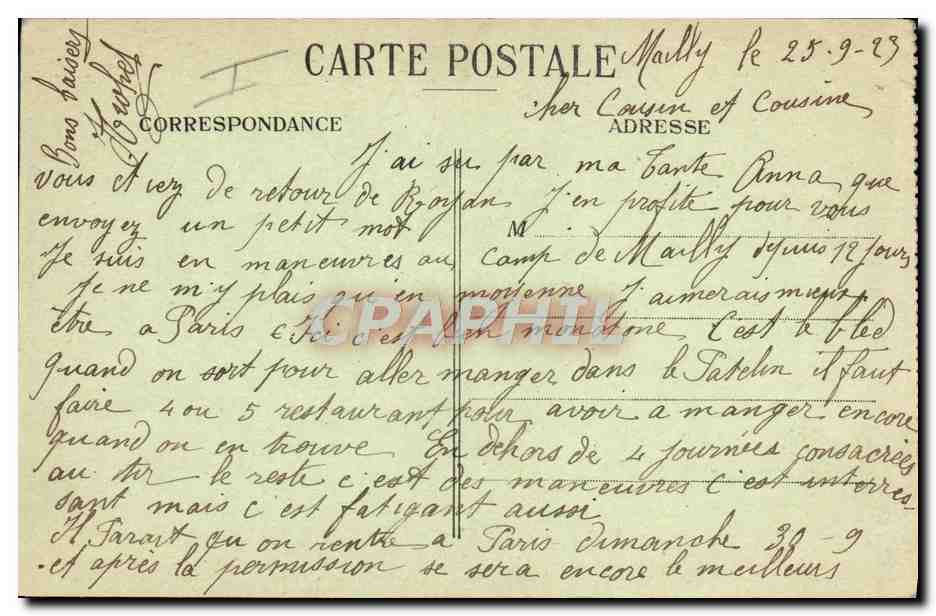 CARTE POSTALE
Mailly le 25-9-23
Cher Cousin et Cousine
CORRESPONDANCE
ADRESSE
J'ai su par ma Tante Anna que
vous etiez de retour de Royan J'en profite pour vous
envoyez un petit mot
M
Je suis en maneuvres au camp de Mailly depuis 12 jours
Je ne m'y plais qu'en moyenne J'aimerais mieux
être a Paris Ici c'est bien monotone C'est le bled
quand on sort pour aller manger dans le Patelin il faut
faire 4 ou 5 restaurant pour avoir a manger encore
quand on en trouve En dehors de 4 journées consacrées
au tir le reste c'est des maneuvres c'est interres-
sant mais c'est fatigant aussi
Il Parait qu'on rentre a Paris dimanche 30-9
et après la permission se sera encore le meilleurs
Bons baisers
CPAPHIL